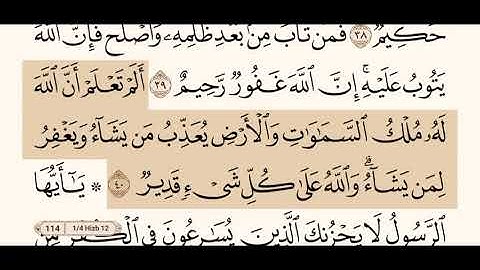 حَكِيمٌ ٣٨ فَمَن تَابَ مِنۢ بَعْدِ ظُلْمِهِۦ وَأَصْلَحَ فَإِنَّ ٱللَّهَ
يَتُوبُ عَلَيْهِ ۗ إِنَّ ٱللَّهَ غَفُورٌ رَّحِيمٌ ٣٩ أَلَمْ تَعْلَمْ أَنَّ ٱللَّهَ
لَهُۥ مُلْكُ ٱلسَّمَٰوَٰتِ وَٱلْأَرْضِ يُعَذِّبُ مَن يَشَآءُ وَيَغْفِرُ
لِمَن يَشَآءُ ۗ وَٱللَّهُ عَلَىٰ كُلِّ شَىْءٍ قَدِيرٌ ٤٠ ۞ يَٰٓأَيُّهَا
ٱلرَّسُولُ لَا يَحْزُنكَ ٱلَّذِينَ يُسَٰرِعُونَ فِى ٱلْكُفْرِ مِنَ
114 1/4 Hizb 12